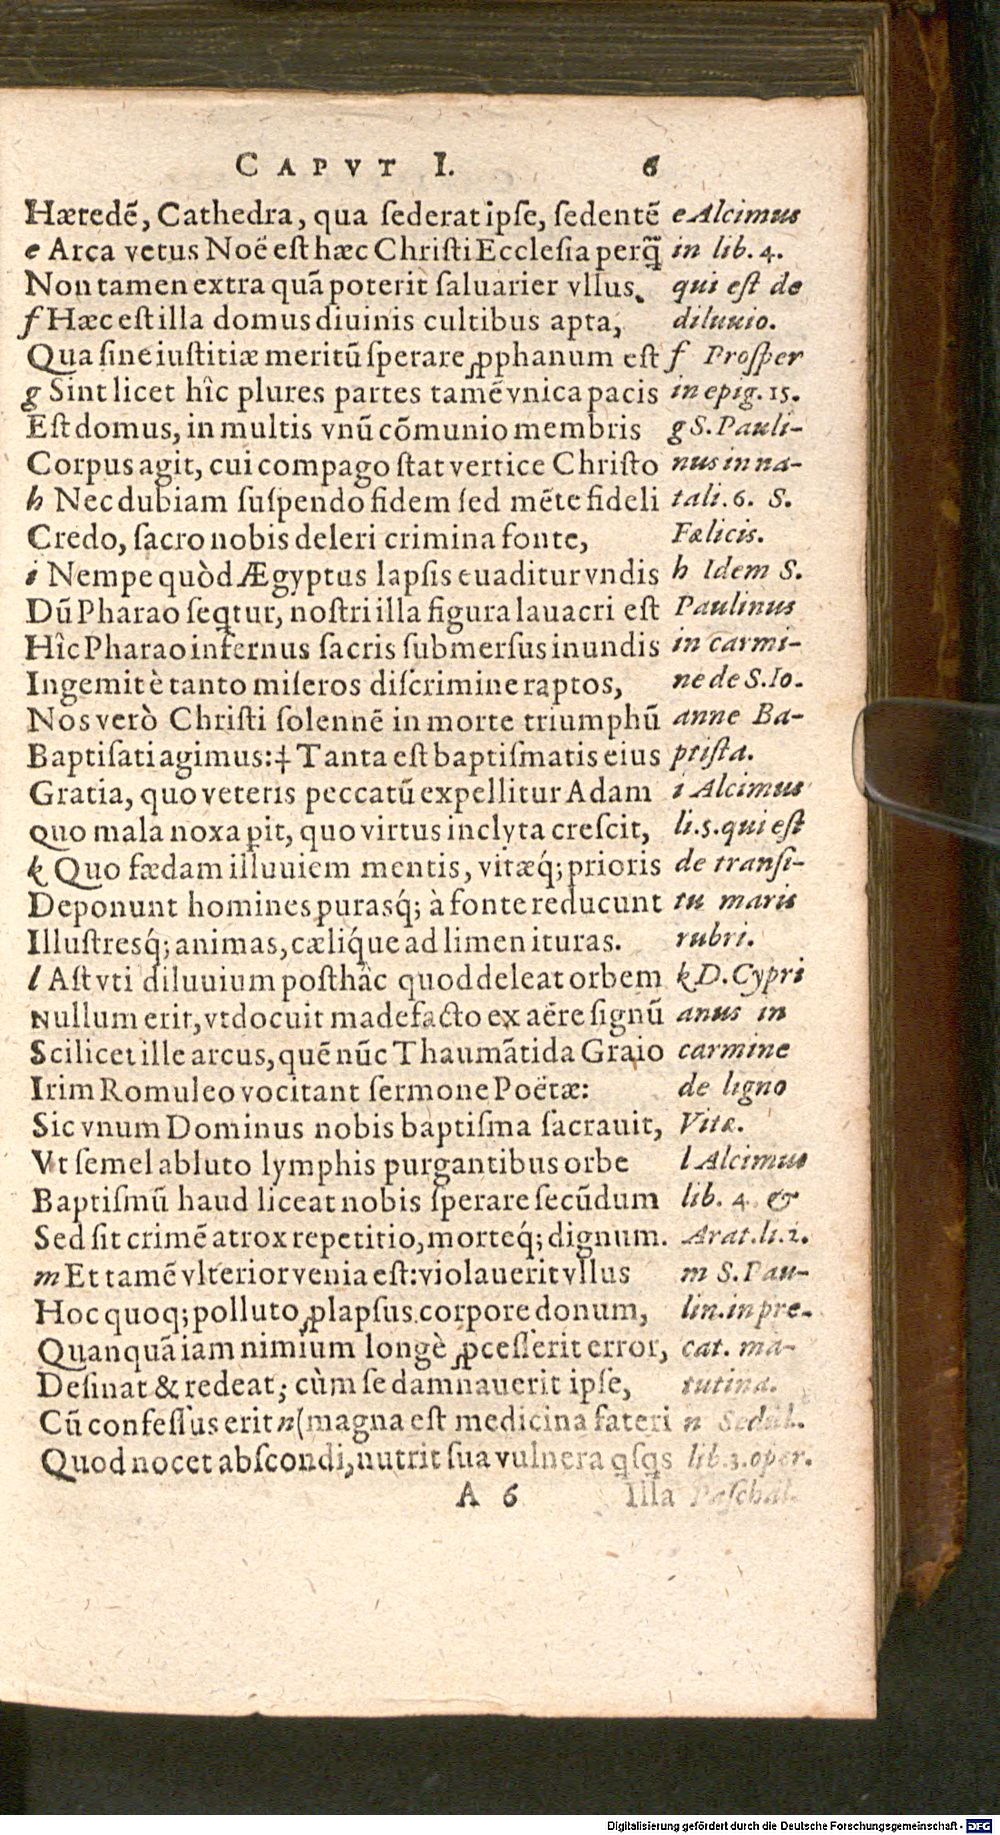 CAPVT I. 6
Hæredẽ, Cathedra, qua ſederat ipſe, ſedentẽ
e Arca vetus Noë eſt hæc Chriſti Eccleſia perq̃
Non tamen extra quã poterit ſaluarier vllus.
f Hæc eſt illa domus diuinis cultibus apta,
Qua ſine iuſtitiæ meritũ ſperare ꝓphanum eſt
g Sint licet hîc plures partes tamẽ vnica pacis
Eſt domus, in multis vnũ cõmunio membris
Corpus agit, cui compago ſtat vertice Chriſto
h Nec dubiam ſuſpendo fidem ſed mẽte fideli
Credo, ſacro nobis deleri crimina fonte,
i Nempe quòd Ægyptus lapſis euaditur vndis
Dũ Pharao ſeq̃tur, noſtri illa figura lauacri eſt
Hîc Pharao infernus ſacris ſubmerſus inundis
Ingemit è tanto miſeros diſcrimine raptos,
Nos verò Chriſti ſolennẽ in morte triumphũ
Baptiſati agimus:‡ Tanta eſt baptiſmatis eius
Gratia, quo veteris peccatũ expellitur Adam
Quo mala noxa ꝑit, quo virtus inclyta creſcit,
k Quo fædam illuuiem mentis, vitæq́; prioris
Deponunt homines purasq́; à fonte reducunt
Illuſtresq́; animas, cæliq́ue ad limen ituras.
l Aſt vti diluuium poſthâc quod deleat orbem
Nullum erit, vt docuit madefacto ex aëre ſignũ
Scilicet ille arcus, quẽ nũc Thaumãtida Graio
Irim Romuleo vocitant ſermone Poëtæ:
Sic vnum Dominus nobis baptiſma ſacrauit,
Vt ſemel abluto lymphis purgantibus orbe
Baptiſmũ haud liceat nobis ſperare ſecũdum
Sed ſit crimẽ atrox repetitio, morteq́; dignum.
m Et tamẽ vlterior venia eſt: violauerit vllus
Hoc quoq; polluto ꝓlapſus corpore donum,
Quanquã iam nimium longè ꝓceſſerit error,
Deſinat & redeat; cùm ſe damnauerit ipſe,
Cũ confeſſus erit n (magna eſt medicina fateri
Quod nocet abſcondi, nutrit ſua vulnera q̃ſq̃s
A 6 Illa
e Alcimus
in lib. 4.
qui eſt de
diluuio.
f Proſper
in epig. 15.
g S. Pauli-
nus in na-
tali. 6. S.
Fælicis.
h Idem S.
Paulinus
in carmi-
ne de S. Io.
anne Ba-
ptiſta.
i Alcimus
li. 5. qui eſt
de tranſi-
tu maris
rubri.
k D. Cypri
anus in
carmine
de ligno
Vitæ.
l Alcimus
lib. 4 &
Arat. li. 2.
m S. Pau-
lin. in pre-
cat. ma-
tutina.
n Sedul.
lib. 3. oper.
Paſchal.
Digitalisierung gefördert durch die Deutsche Forschungsgemeinschaft - DFG